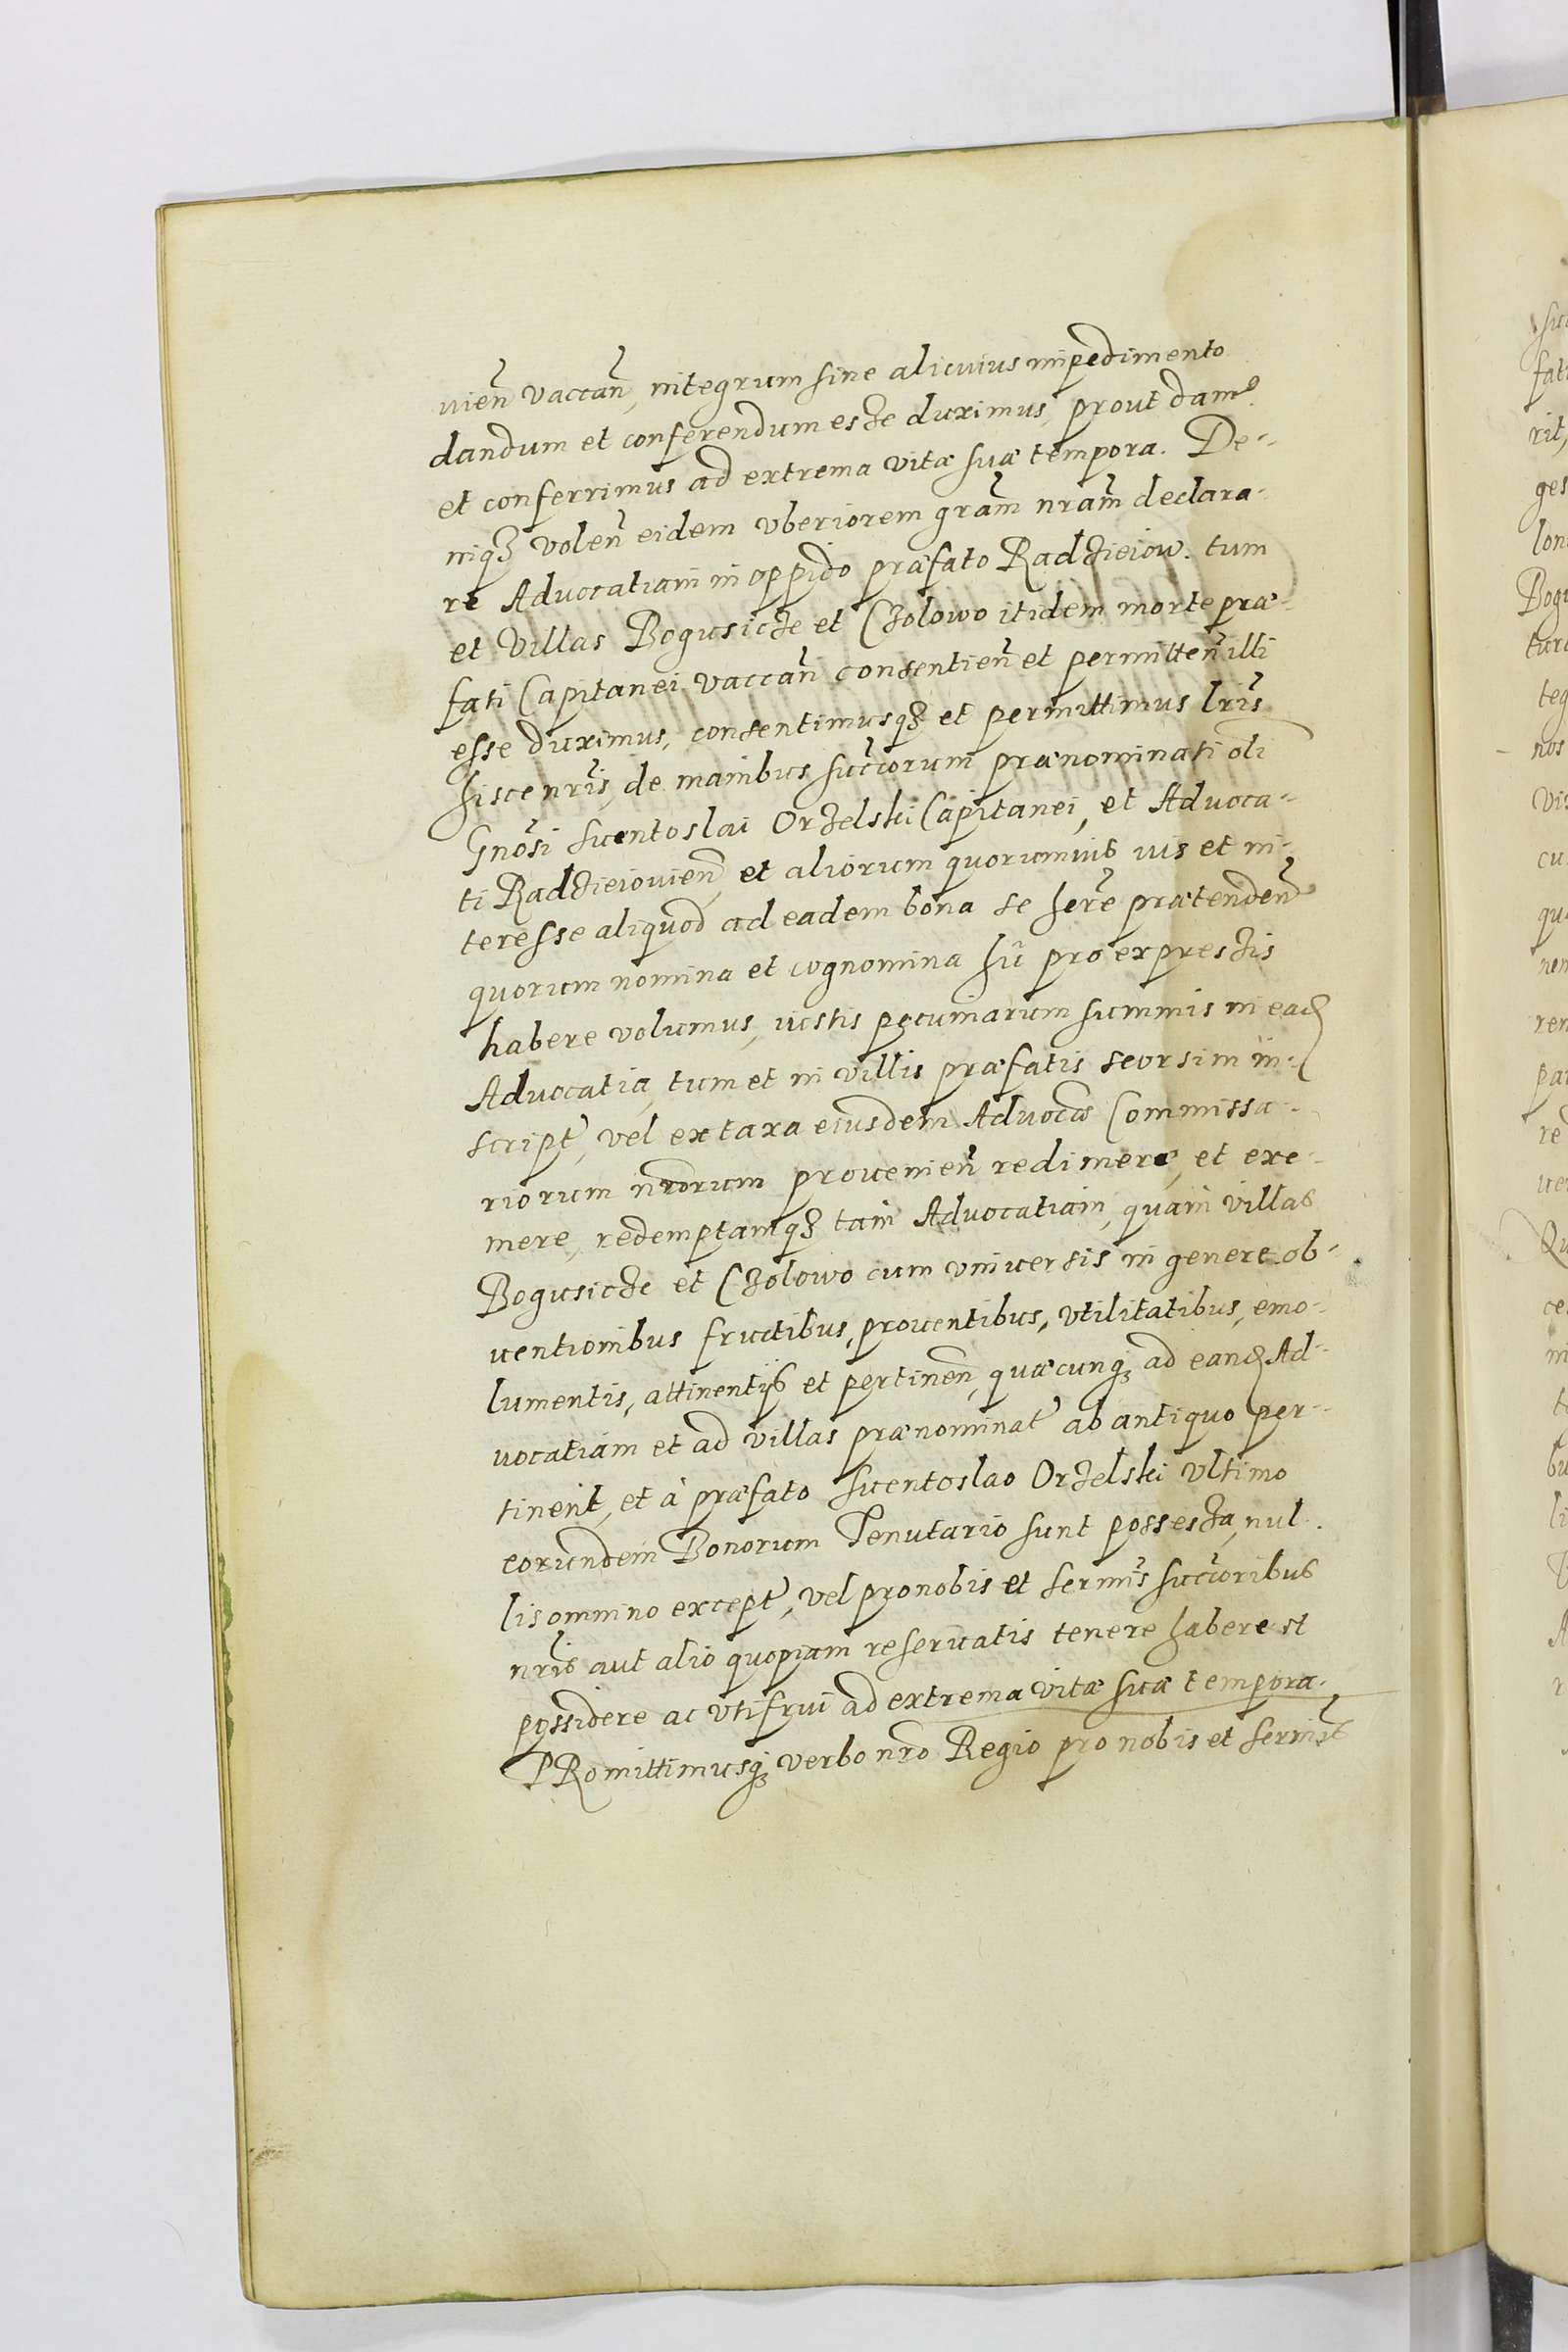 uien̄ vaccan̄, integrum sine alicuius impedimento
dandum et conferendum esse duximus, prout damꝰ
et conferrimus ad extrema vitæ suæ tempora. De-
niqꝫ volen̄ eidem vberiorem gram̄ nram̄ declara-
re Advocatiam in oppido præfato Radzieiow. tum
et villas Bogusicze et Czolowo itidem morte præ-
fati Capitanei vaccan̄ consentien̄ et permitten̄ illi
esse duximus, consentimusqꝫ et permittimus lris̄
hisce nris̄, de manibus succ̄orum prænominati oli
Gnosi̅ Swentoslai Orzelski Capitanei, et Advoca-
ti Radzieiouien̄, et aliorum quorumuis ius et in-
teresse aliquod ad eadem bona se here̅ prætenden̄
quorum nomina et cognomina hic̄ pro expressis
habere volumus, iustis pecuniarum summis in ead
Advocatia, tum et in villis præfatis seorsim in-
script, vel ex taxa eiusdem Advocæ Commissa-
riorum nrorum prouenien̄ redimere, et exe-
mere, redemptamqꝫ tam Advocatiam, quam villas
Bogusicze et Czolowo cum vniuersis in genere ob-
uentionibus fructibus, prouentibus, vtilitatibus, emo-
lumentis, attinentijs et pertinen̄, quæcunqꝫ ad eand Ad-
uocatiam et ad villas prænominat ab antiquo per-
tinent, et à præfato Swentoslao Orzelski vltimo
eorundem Bonorum Tenutario sunt possessa, nul-
lis omnino except, vel pro nobis et sermis̄ succ̄oribus
nris̄ aut alio quopiam reseruatis tenere habere et
possidere ac vti frui ad extrema vitæ suæ tempora.
PRomittimusqꝫ verbo nro Regio pro nobis et sermis̄